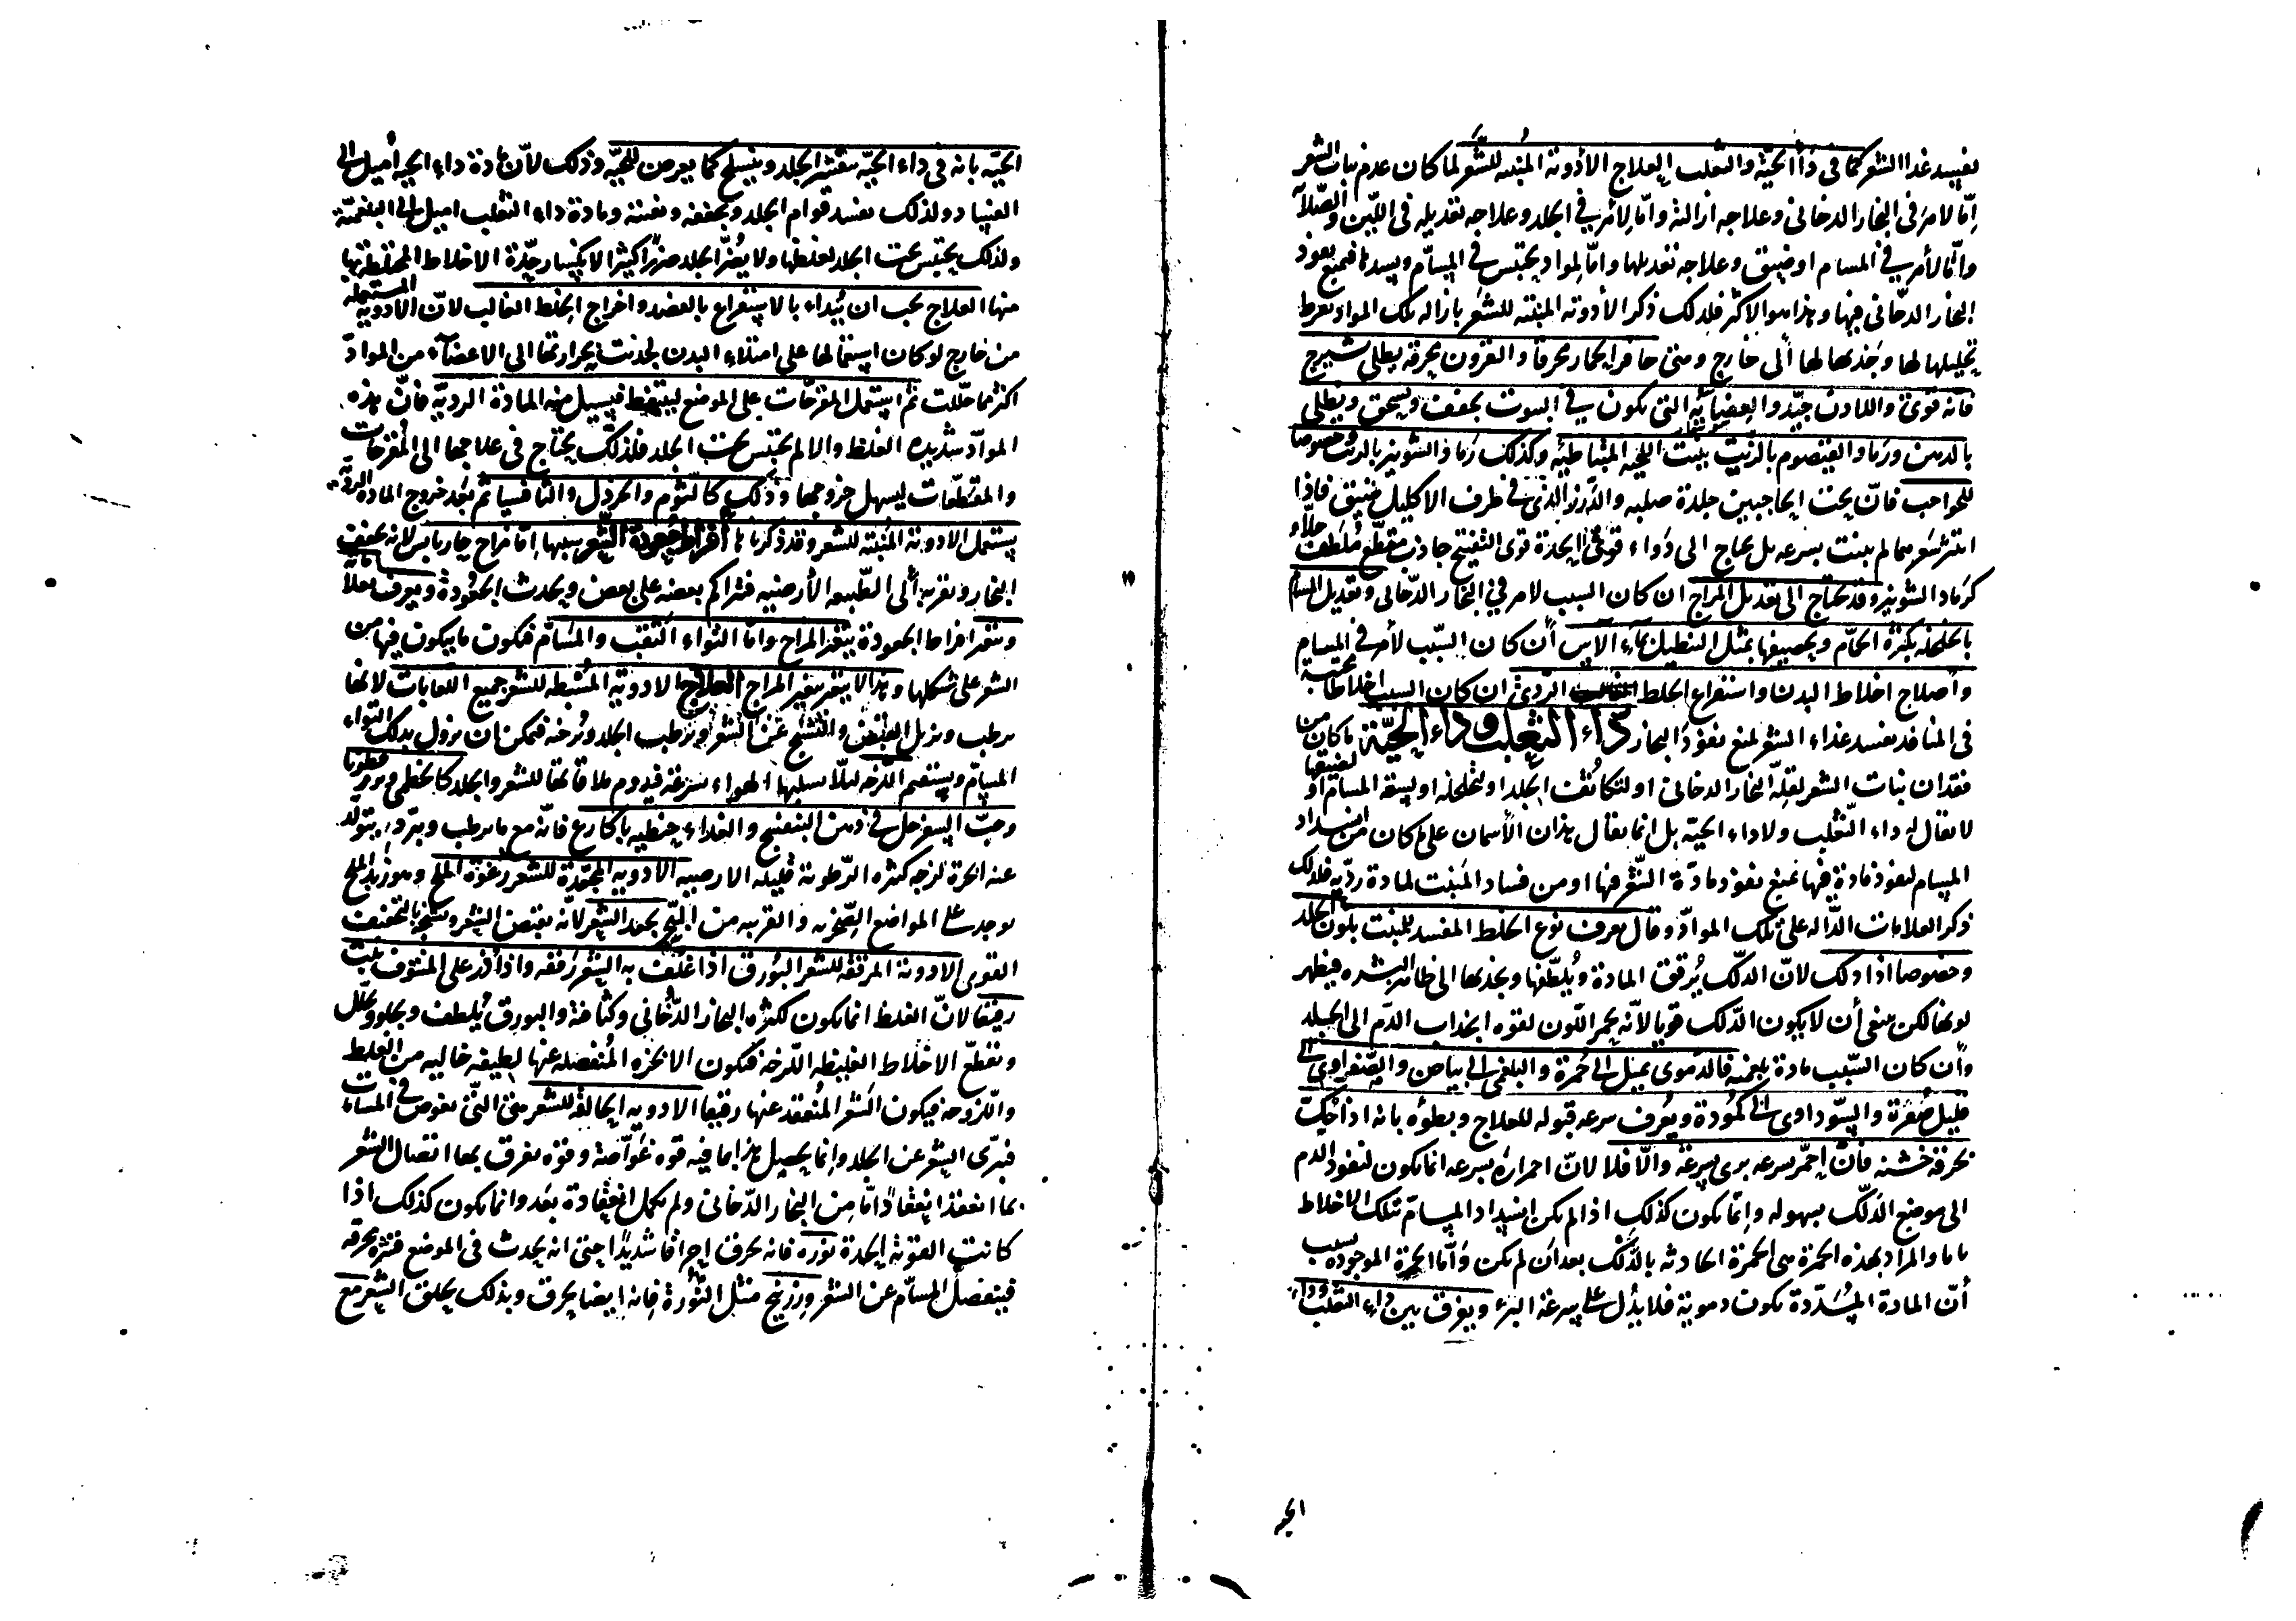 يفسد غذا الشعر كما فى داا الحيّة والثعلب العلاج الأدوية المنبته للشعر لما كان عدم نبات الشعر
إمّا لامر فى البخار الدخانى وعلاجه ازالته وامّا لأمر فى الجلد وعلاجه تعديله فى اللين والصلابة
وامّا لأمر فى المسام او ضيق وعلاجه تعديلها وامّا لمواد يحتبس فى المسام ويسدها فيمنع نفوذ
البخار الدخانى فيها وهذا هو الاكثر فلذلك ذكر الأدوية المنبتة للشعر بازاله تلك المواد بفرط
تحليلها لها وجذبها لها ألى خارج ومنى حافر الحمار محرقا والقرون محرقة يطلى بشيرج
فانه قوى واللادن جيّد والعضاية التى يكون فى البيوت يجفف ويسحق ويطلى
بالدهن ورماد القيصوم بالزيت ينبت اللحيه المتباطيه وكذلك رماد الشونيز بالزيت وخصوصا
للحواجب فانّ تحت الحاجبين جلدة صلبه والدرز الذى فى طرف الاكليل ضيق فاذا
انتثر شعرهما لم ينبت بسرعه بل يحتاج الى دواء قوىّ الحدة قوى التفتيح جاذب مقطّع ملطف جلّاء
كرماد الشونيز وقد يحتاج الى تعديل المزاج ان كان السبب لامر فى البخار الدّخانى وتعديل المسام
باخلخله بكثرة الحمّام وتحصيفها بمثل التنطيل بماء الآس أن كان السّبب لأمر فى المسام
وأصلاح اخلاط البدن واستفراع الخلط الردىّ ان كان السبب اخلاطا محتبسة
فى المنافذ تفسد غذاء الشعر لمنع نفوذ البخار داء الثعلب وداء الحيّة ما كان من
فقدان نبات الشعر لقلّة البخار الدخانى او لتكاثف الجلد او لتخلخله او لسعة المسام او لضيقها
لا يقال له داء الثعلب ولا داء الحية بل انما يقال هذان الأسمان على ما كان من انسداد
المسام لنفوذ مادة فيها تمنع نفوذ مادّة الشّعر فيها او من فساد المنبت لمادة رديّه فلذلك
ذكر العلامات الدّاله على تلك الموادّ وقال يعرف نوع الخلط المفسد للمنبت بلون الجلد
وخصوصا اذا دلك لانّ الدلك يُرقق المادة ويُلطّفها ويجذبها الى ظاهر البشره فيظهر
لونها لكن ينبغى أن لا يكون الدّلك قويا لأنّه يحمر اللون لقوه انجذاب الدّم الى الجلد
وأن كان السّبب مادة بلغميه فالدموى يميل الى حُمرة والبلغمى الى بياض والصّفراوى الى
قليل صُفرة والسّوداوى الى كمُودة ويُعرف سرعه قبوله للعلاج وبطؤه بانه اذا حُكّ
بخرقة خشنه فان إحمّر بسرعه برى بسرعة والّا فلا لانّ احمراره بسرعه انما يكون لنفوذ الدم
الى موضع الدّلك بسهوله وانّما يكون كذلك اذا لم يكن انسداد المسامّ بتلك الاخلاط
تاما والمراد بهذه الحمرة هى الحمرة الحادثه بالدّلك بعد ان لم تكن وامّا الحمرة الموجوده بسبب
أنّ المادة المُسدّدة يكون دموية فلا يدُل على سرعة البرء ويفرق بين داء الثعلب وداء
الحيه
الحيّه بانه فى داء الحيّه يتقشر الجلد وينسلخ كما يعرض للحيّه وذلك لأنّ مادة داء الحيه أميل الى
الفساد ولذلك يفسد قوام الجلد ويجففه ويعفنه ومادة داء الثعلب اميل الى البلغميّة
ولذلك يحتبس تحت الجلد لغلظها ولا يضرّ الجلد ضررا كثيرا لانكسار حدّة الاخلاط المختلطة بها
منها العلاج يجب ان يُبداء بالاستفراغ بالفصد واخراج الخلط الغالب لانّ الادوية المستعمله
من خارج لو كان استعمالها على امتلاء البدن لجذبت بحرارتها الى الاعضاء من الموادّ
اكثر مما حللت ثم استعمل المقرّحات على الموضع ليتنفط فيسيل منه المادة الرديّة فانّ هذه
الموادّ شديده الغلظ والا لم تحتبس تحت الجلد فلذلك يحتاج فى علاجها الى المقرّحات
والمقطّعات ليسهل خروجها وذلك كالثوم والخردل والثافسيا ثم بعد خروج المادة الرديّة
يستعمل الادوية المنبتة للشعر وقد ذكرناها أفراط جعودة الشعر سببها امّا مزاج حار يابس لانه يجفف
البخار ويقربه ألى الطّبيعه الأرضيه فتراكم بعضه على بعض ويحدث الجعُودة ويعرف بعلاماته
وبتغير افراط الجعودة بتغير المزاج وامّا التواء الثقب والمسامّ فيكون ما يكون فيها من
الشعر على شكلها وهذا لا يتغير بتغير المزاج العلاج الادويه المُسبطه للشعر جميع اللعابات لانها
يرطب ويزيل القبض والتشنّج عن الشعر ويرطب الجلد ويُرخه فيمكن ان يزول بذلك التواء
المسامّ ويستعمل اللزجه لئلّا يسلبها الهواء بسرعة فيدوم ملاقاتها للشعر والجلد كالخطمى وبزر قطونا
وحبّ السفرجل فى دهن البنفسج والغذاء حنطيه باكارع فانّه مع ما يرطب ويبرّد يتولّد
عنه ابخرة لزجه كثيره الرّطوبة قليله الارضيه الادويه المجعّدة للشعر رغوة الملح وهو زبد الملح
يوجد على المواضع الصّخريه والقريبه من البحر يجعد الشعر لأنّه يقبض الشعر ويشنجه بالتجفيف
القوى الادوية المرققه للشعر البُورق اذا غُلف به الشعر رققه واذا ذر على المنتوف نبت
رقيقا لانّ الغلظ انما يكون لكثره البخار الدّخانى وكثافته والبورق يُلطف ويجلو ويحلّل
ويقطّع الاخلاط الغليظه اللّزجة فيكون الابخره المُنفصله عنها لطيفه خاليه من الغلظ
واللزوجة فيكون الشعر المُنعقد عنها رقيقا الادويه الحالقه للشعر هى التّى يغوص فى المسامّ
فتبرّى الشعر عن الجلد وانما يحصل هذا بما فيه قوه غوّاصة وقوّه يفرق بها اتصال الشعر
بما انعقد انعقادًا مّا من البخار الدّخانى ولم يكمل انعقادة بعد وانما يكون كذلك اذا
كانت القوّة الحدة نوره فانه يحرق إحراقا شديدًا حتى انه يحدث فى الموضع قشره محرقه
فينفصل المسامّ عن الشعر وزرنيخ مثل النّورة فانه ايضا يحرق وبذلك يحلق الشعر مع